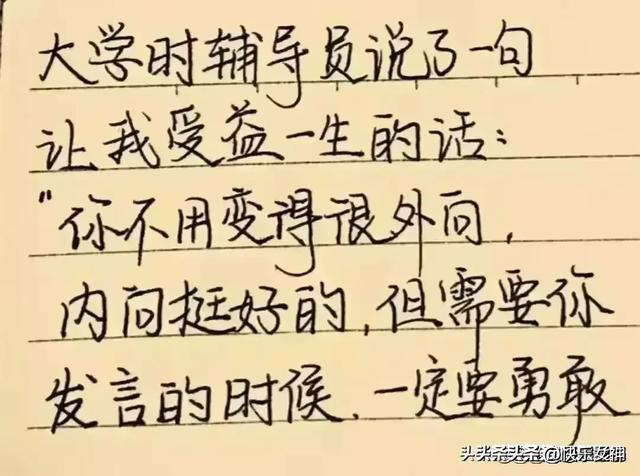 大学时辅导员说了一句
让我受益一生的话：
"你不用变得很外向，
内向挺好的，但需要你
发言的时候，一定要勇敢
头条 @快乐女神